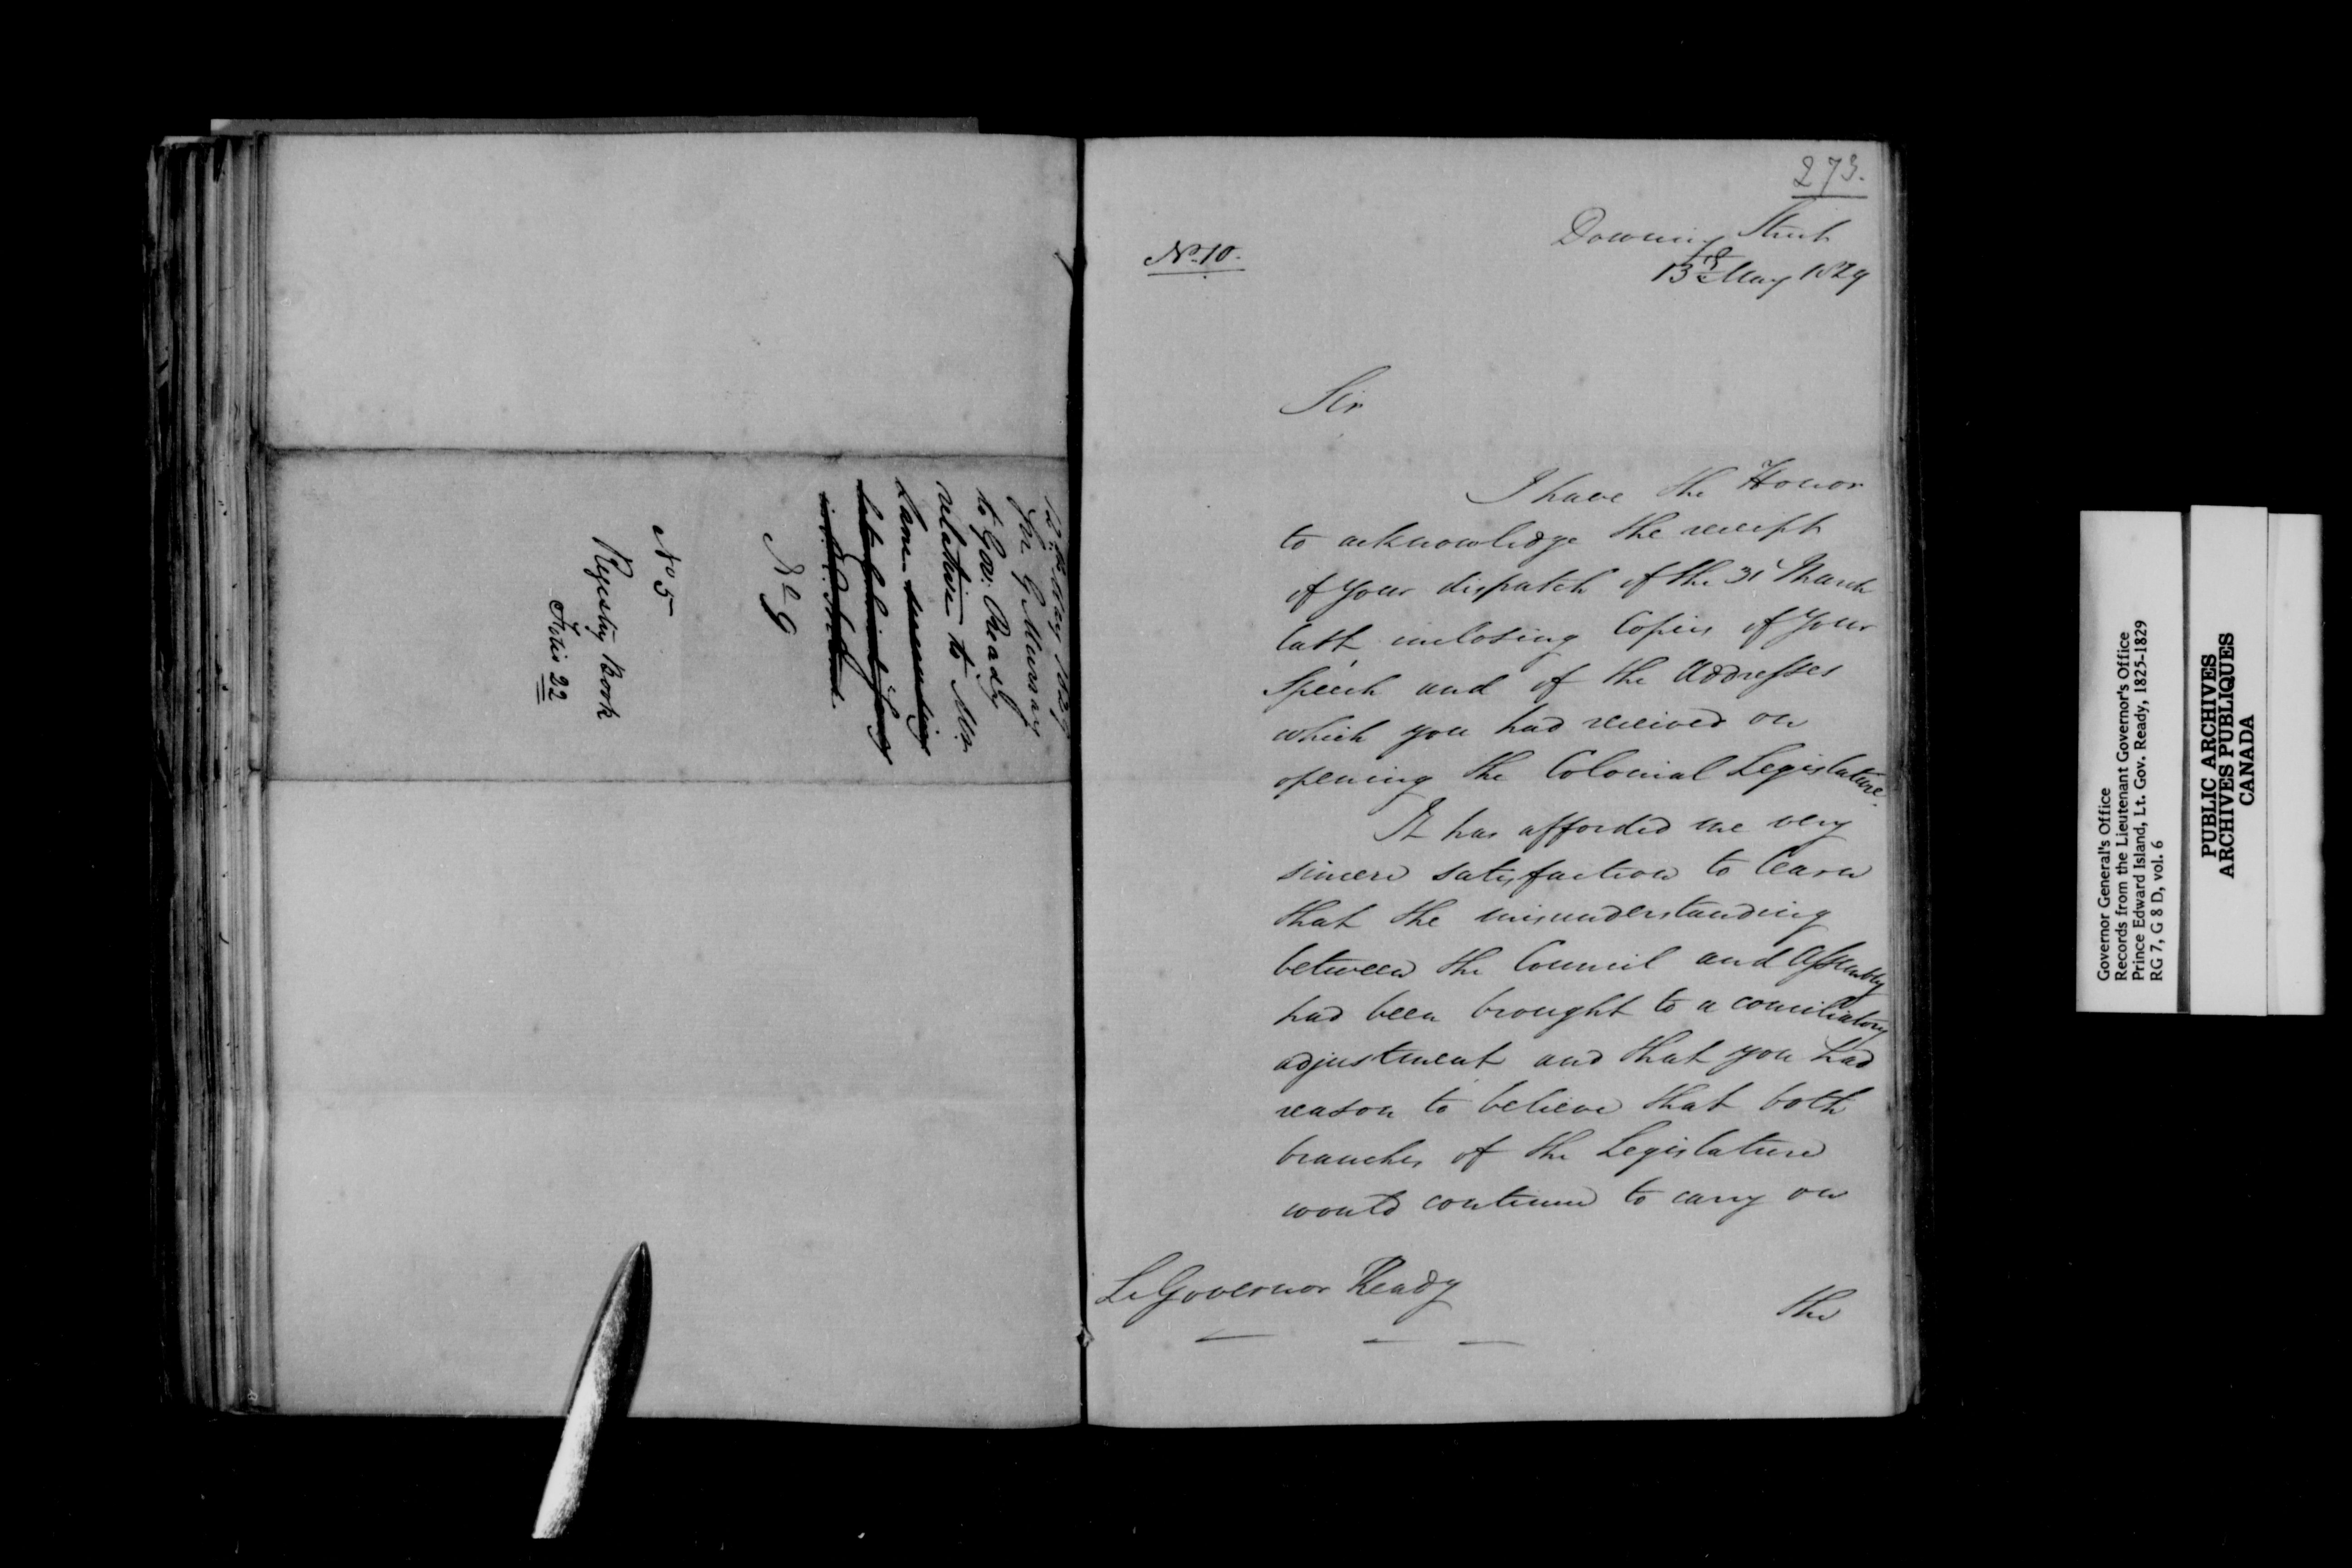 12th May 1829
Sir G. Murray
to Gov. Ready
relative to Mr.
Lane
No 9
No 5
Registry Book
Folio 22
273.
No. 10.
Downing Street
13th May 1829
Sir
I have the Honor
to acknowledge the receipt
of Your dispatch of the 31 March
last, inclosing Copies of Your
Speech and of the Addresses
which you had received on
opening the Colonial Legislature.
It has afforded me very
sincere satisfaction to learn
that the misunderstanding
between the Council and Assembly
had been brought to a conciliatory
adjustment and that you had
reason to believe that both
branches of the Legislature
would continue to carry on
Lt Governor Ready
the
Governor General's Office
Records from the Lieutenant Governor's Office
Prince Edward Island, Lt. Gov. Ready, 1825-1829
RG 7, G 8 D, vol. 6
PUBLIC ARCHIVES
ARCHIVES PUBLIQUES
CANADA